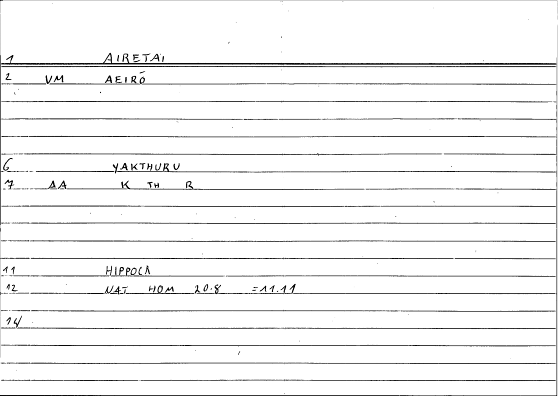 1 AIRETAI
2 VM AEIRŌ
6 YAKTHURU
7 AA K TH R
11 HIPPOCR
12 NAT HOM 20.8 =11.11
14